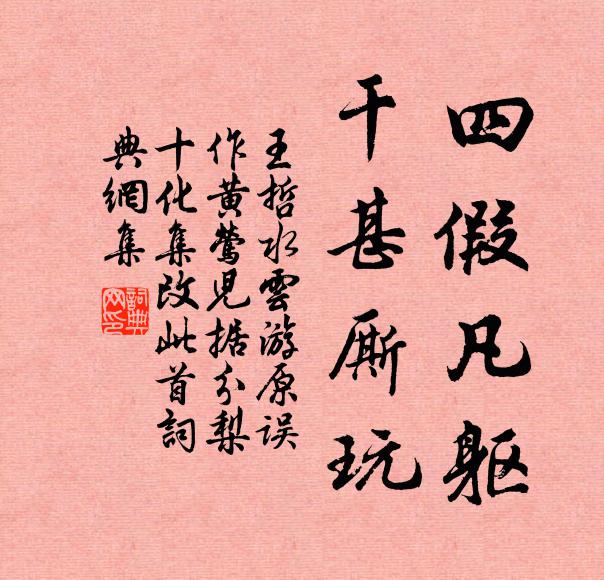 四假凡躯
干甚厮玩
王哲水雲游原误
作黄莺児据分梨
十化集改此首詞
典網集
詞典
网印